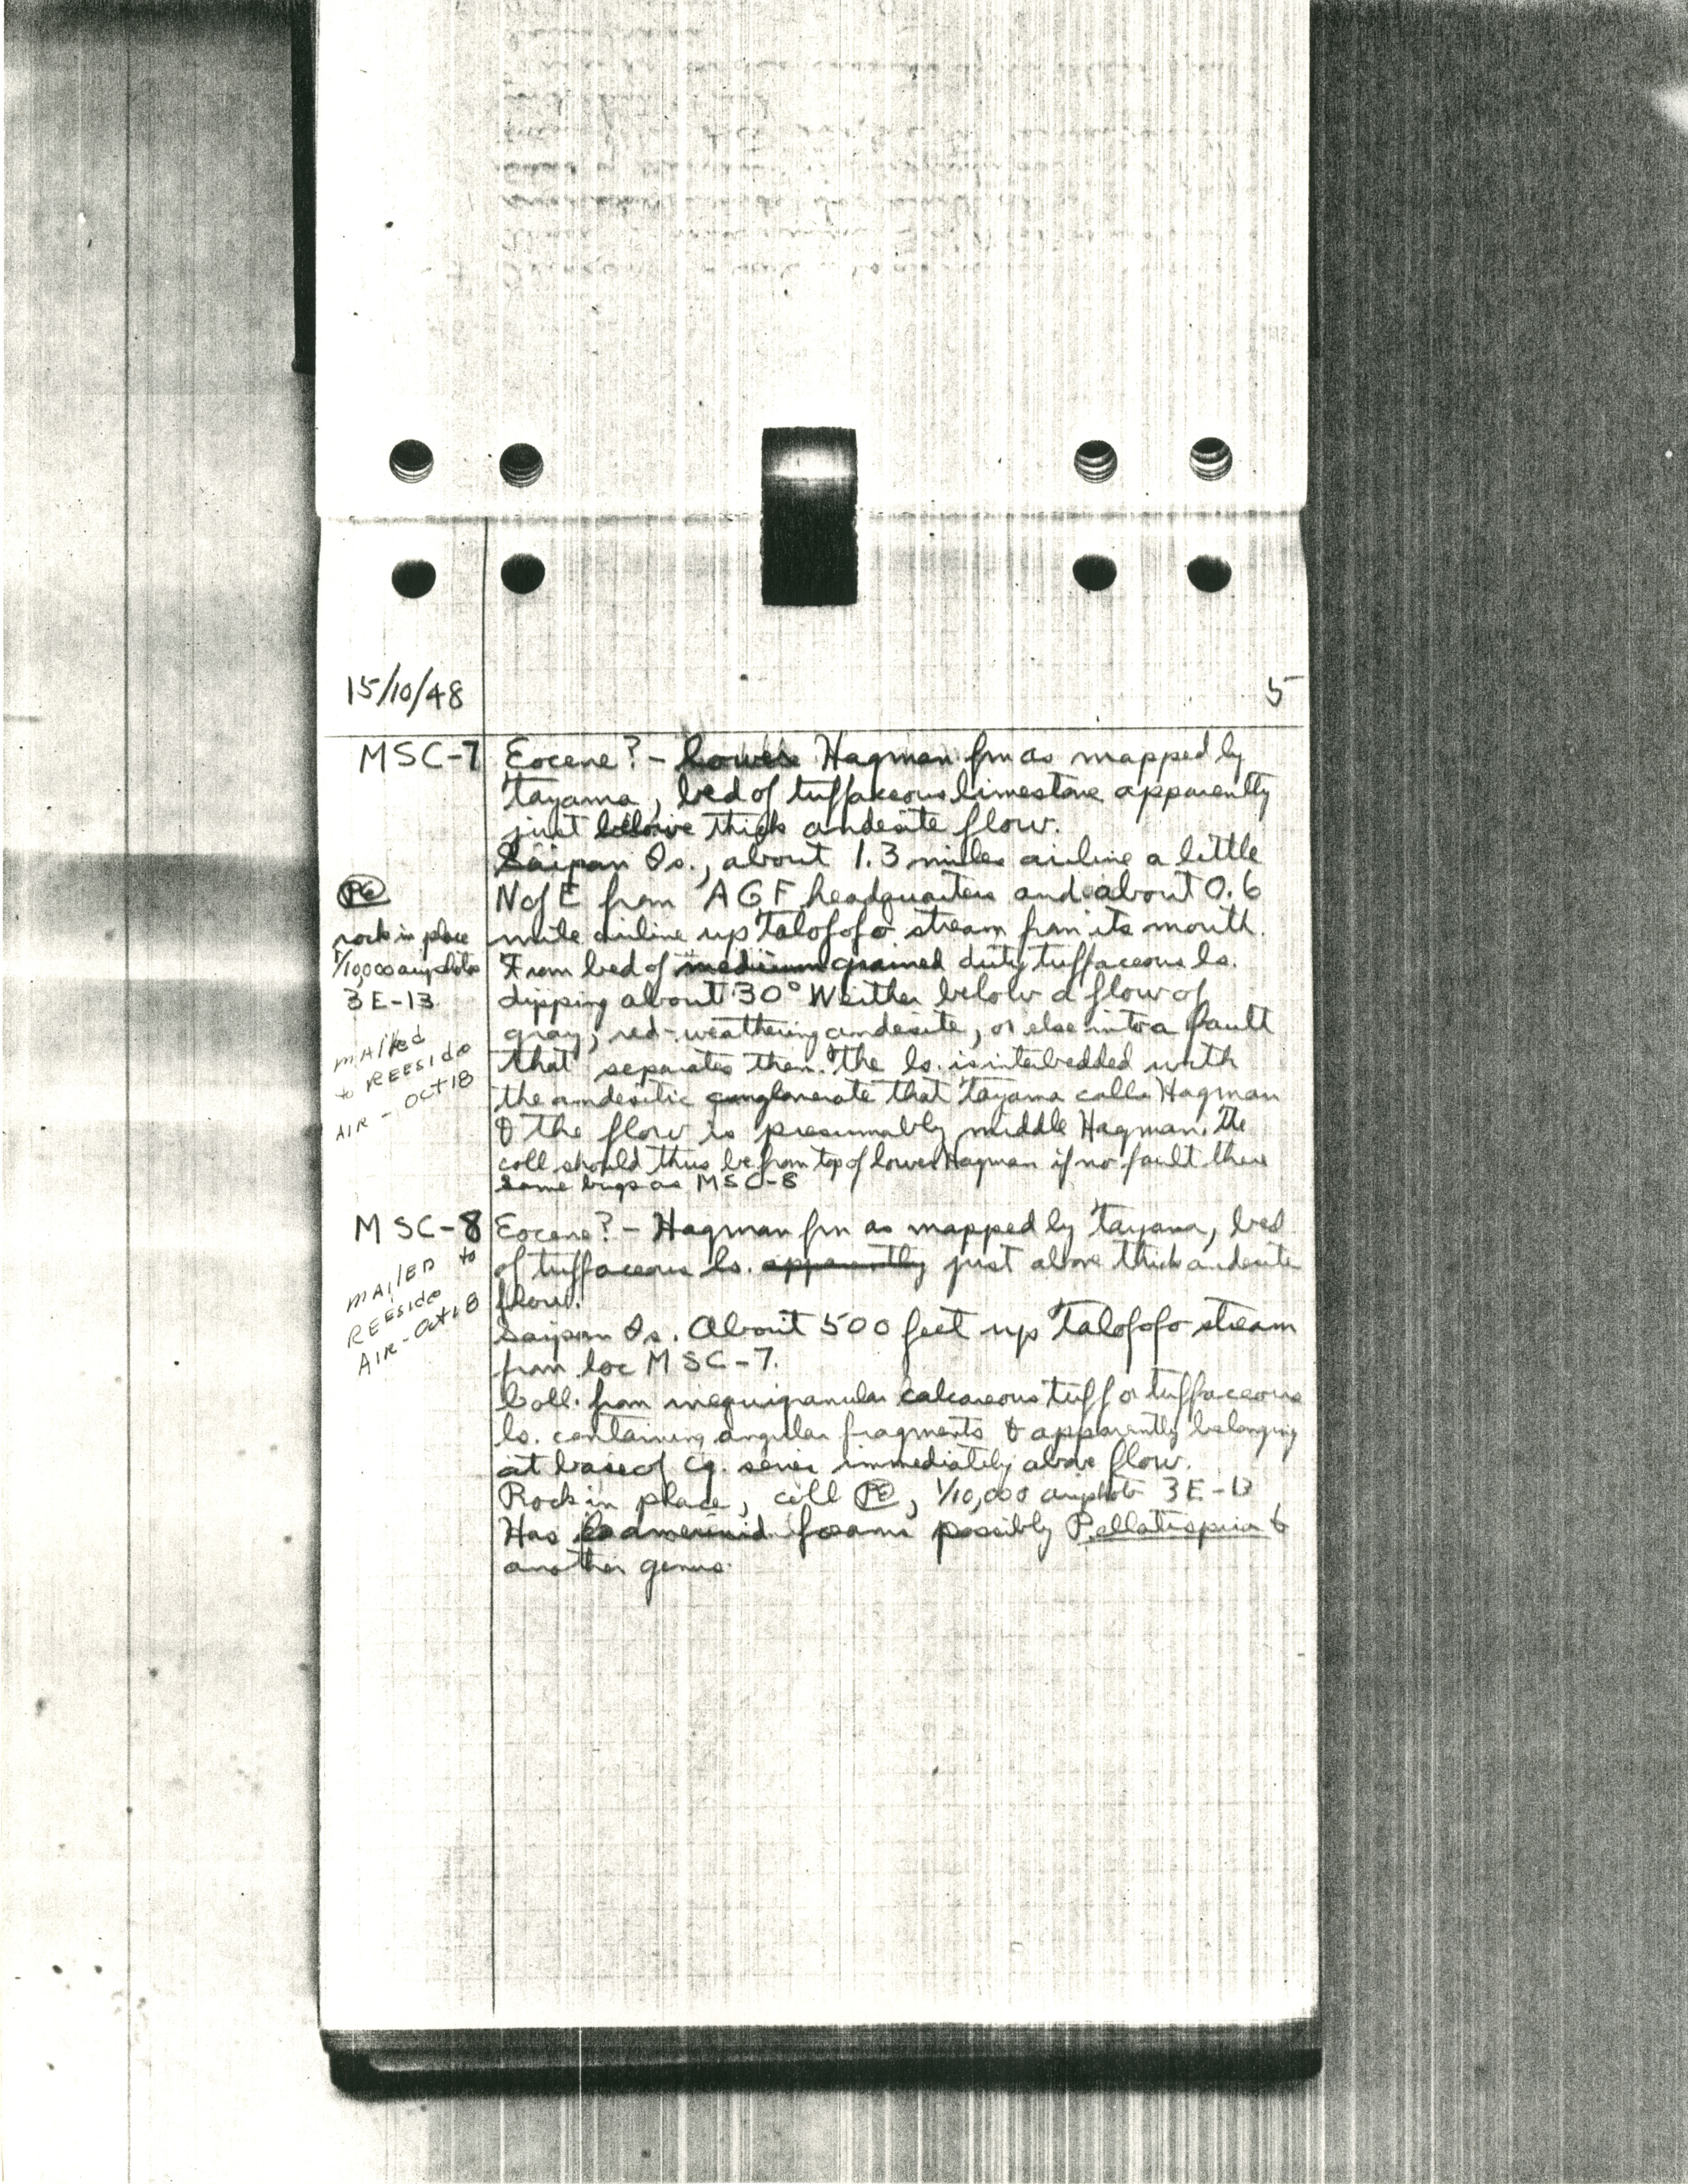 15/10/48
5
MSC-7
Eocene? - lower Hagman fm as mapped by
Tayama, bed of tuffaceous limestone apparently
just below thick andesite flow.
Saipan Is., about 1.3 miles airline a little
N of E from AGF headquarters and about 0.6
mile airline up Talofofo stream from its mouth.
From bed of medium grained dirty tuffaceous ls.
dipping about 30° W either below a flow of
gray, red-weathering andesite, or else into a fault
that separates them. The ls. is interbedded with
the andesitic conglomerate that Tayama calls Hagman
& the flow is presumably middle Hagman. The
coll should thus be from top of lower Hagman if no fault there
same bugs as MSC-8
PE
rock in place
1/10,000 airphoto
3E-13
mailed
to REESIDE
AIR - Oct 18
MSC-8
Eocene? - Hagman fm as mapped by Tayama, bed
of tuffaceous ls. apparently just above thick andesite
flow.
Saipan Is. About 500 feet up Talofofo stream
from loc MSC-7.
Coll. from inequigranular calcareous tuff or tuffaceous
ls. containing angular fragments & apparently belonging
at base of cg. series immediately above flow.
Rock in place, coll PE, 1/10,000 airphoto 3E-13
Has forams possibly Pellatispira &
another genus.
MAILED to
REESIDE
AIR - Oct 18